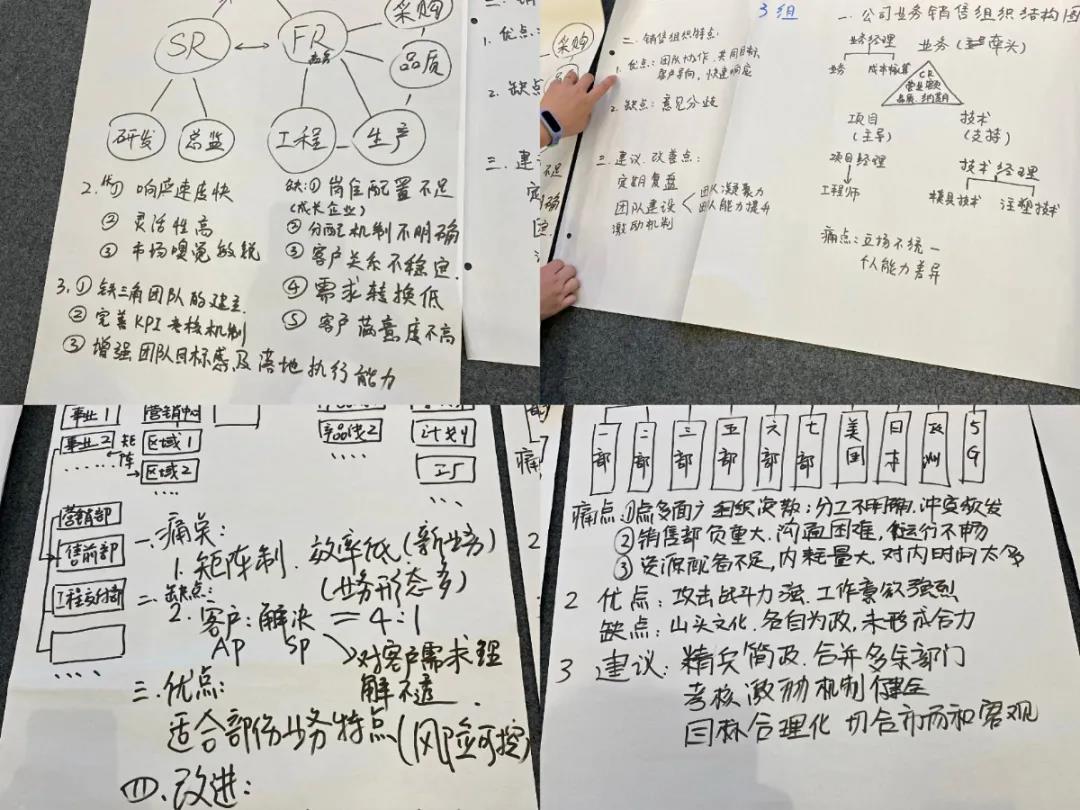 采购
SR
FR
品质
研发
总监
工程
生产
2. 优① 响应速度快
② 灵活性高
③ 市场嗅觉敏锐
缺:① 岗位配置不足
(成长企业)
② 分配机制不明确
③ 客户关系不稳定.
④ 需求转换低
⑤ 客户满意度不高
3. ① 铁三角团队的建立.
② 完善KPI考核机制
③ 增强团队目标感及落地执行能力
1. 优点:
2. 缺点
三. 建议
采购
二. 销售组织特点:
1. 优点: 团队协作. 共同目标.
客户导向, 快速响应
2. 缺点: 意见分歧
三. 建议. 改善点:
定期复盘
团队建设
激励机制
团队凝聚力
团队能力提升
3组
一. 公司业务销售组织结构图
业务经理
业务
成本核算
业务(牵头)
CR
项目
(主导)
技术
(支持)
项目经理
工程师
技术经理
模具技术
注塑技术
痛点: 立场不统一
个人能力差异
事业1
事业2
矩阵
营销中心
区域1
区域2
产品线2
计划4
工厂
营销部
售前部
工程交付部
一. 痛点:
1. 矩阵制. 效率低(新业务)
(业务形态多)
二. 缺点:
2. 客户:解决 = 4:1
AP SP
对客户需求理
解不透.
三. 优点:
适合部份业务特点(风险可控)
四. 改进:
一部
二部
三部
五部
六部
七部
美国
日本
欧洲
5G
痛点 ①点多面广 组织次数; 分工不明确. 冲突频发
② 销售部负重大. 沟通困难, 运行不畅
③ 资源配备不足, 内耗量大. 对内时间太多
2 优点: 攻击战斗力强. 工作意欲强烈
缺点: 山头文化. 各自为政, 未形成合力
3 建议: 精兵简政. 合并多余部门
考核激励机制健全
目标合理化 切合市场和客观